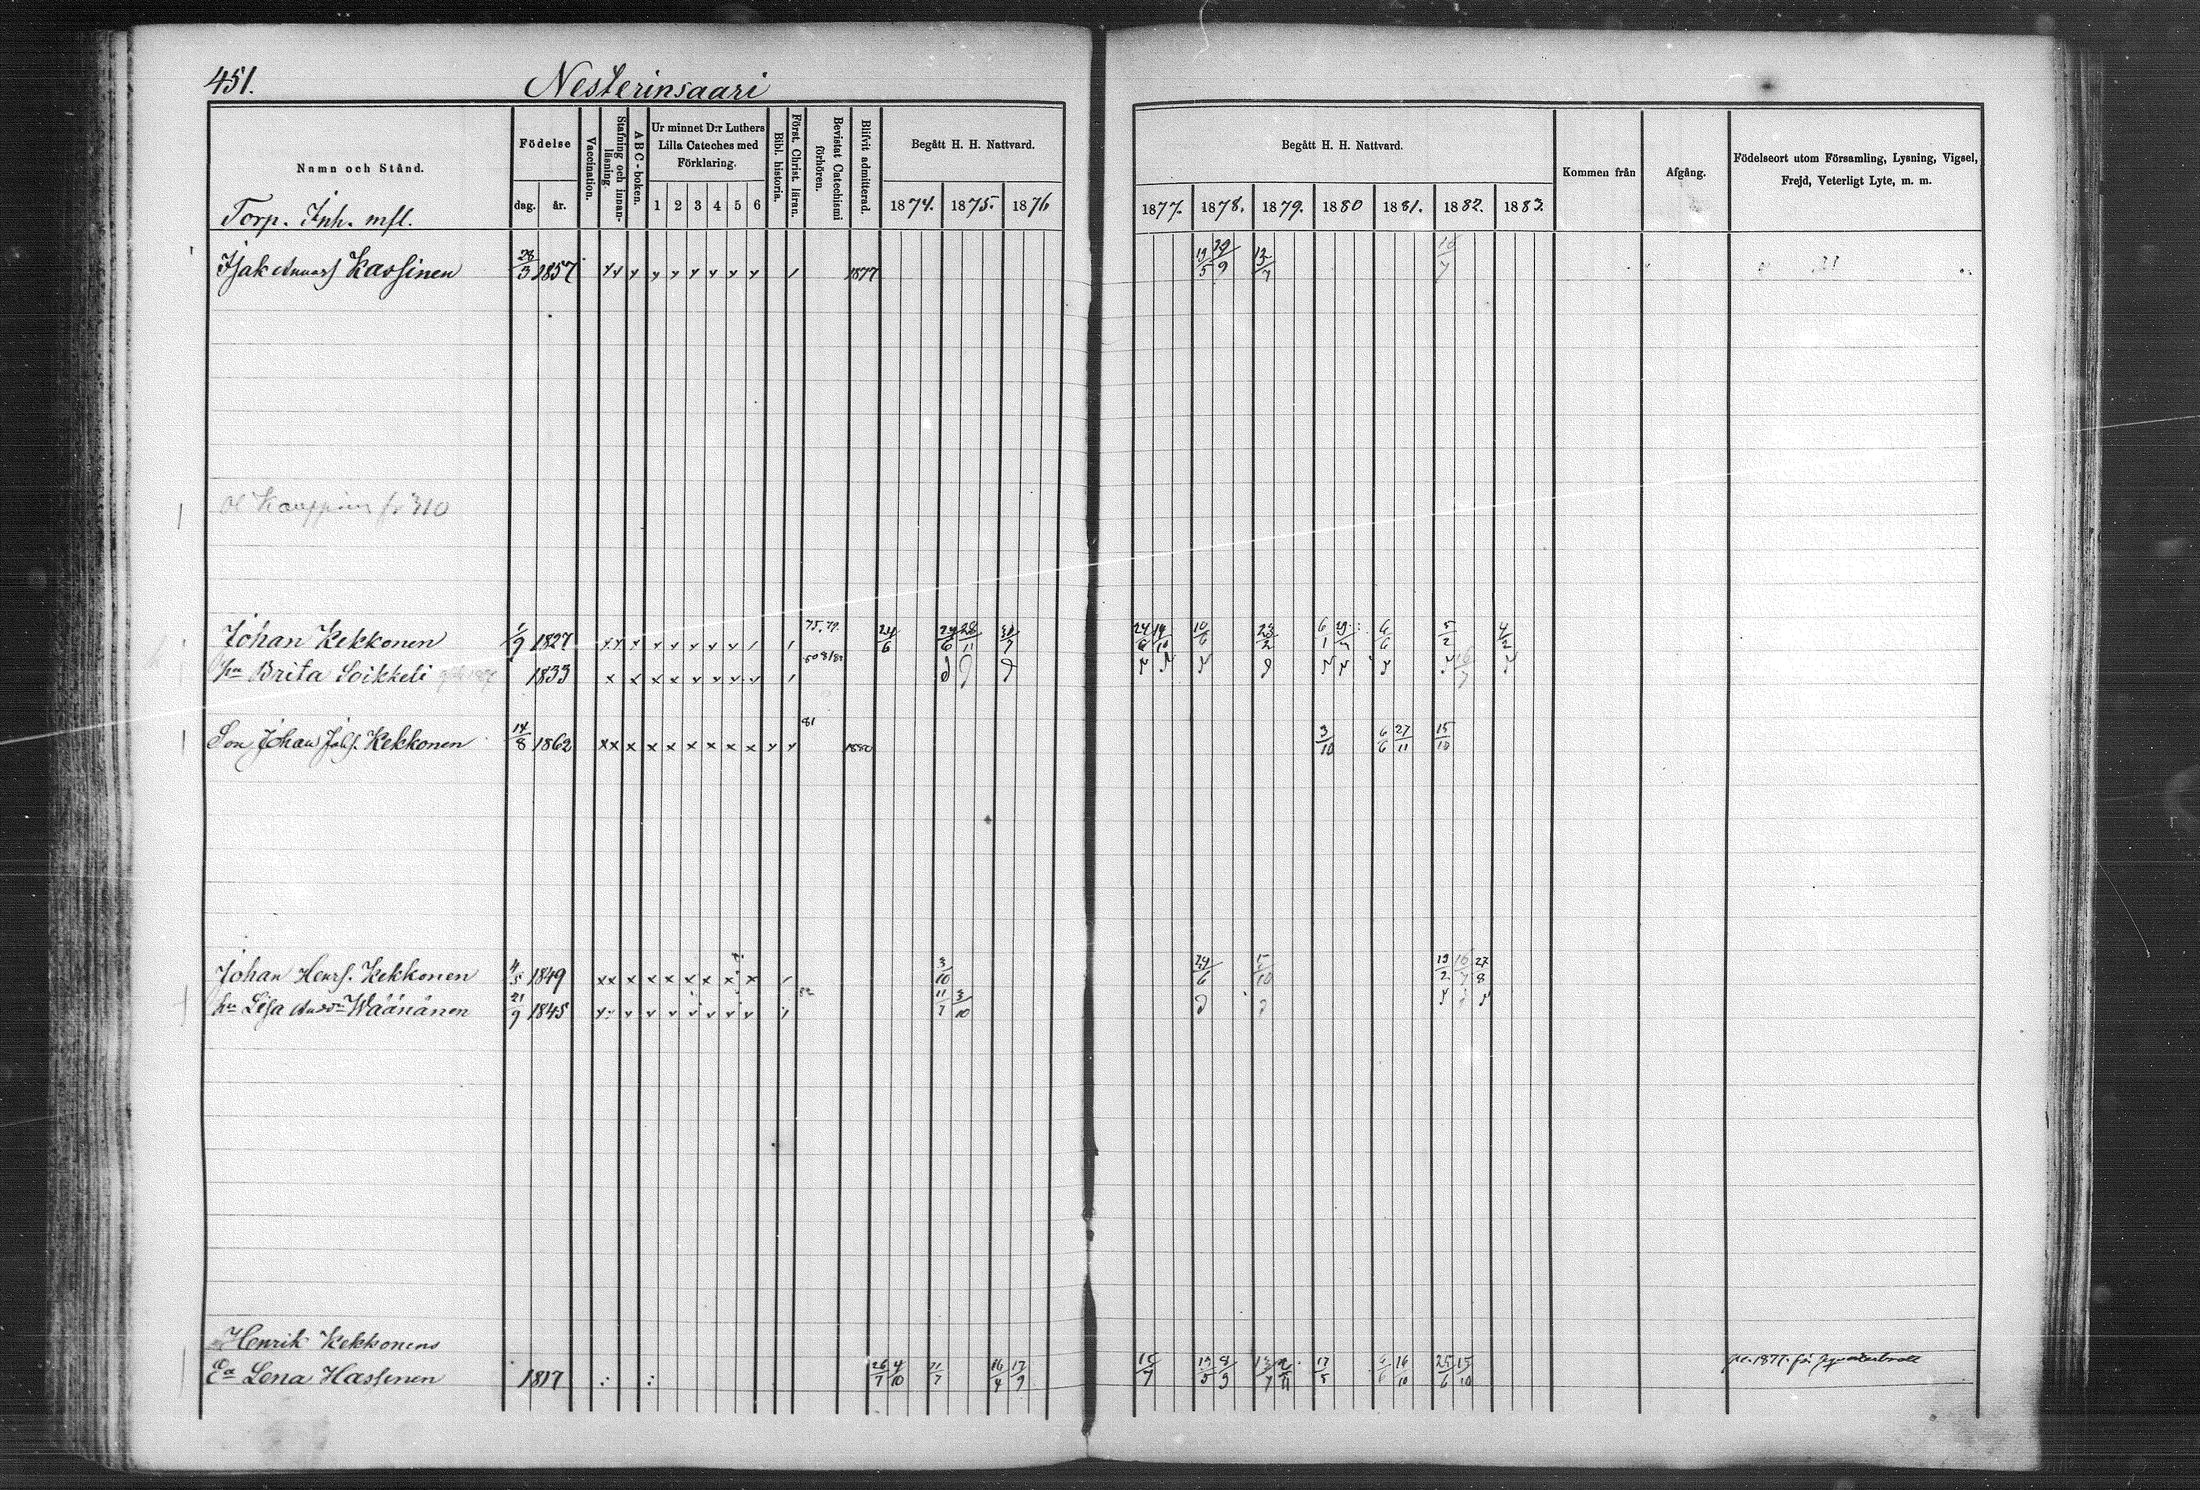 451. Nesterinsaari
Namn och Stånd.
Födelse
dag. år.
Vaccination.
Stafning och innanläsning
ABC-boken.
Ur minnet D:r Luthers
Lilla Cateches med
Förklaring.
1 2 3 4 5 6
Bibl. historia.
Först. Christ. läran.
Bevistat Catechismi förhören.
Blifvit admitterad.
Begått H. H. Nattvard.
1874. 1875. 1876
Begått H. H. Nattvard.
1877. 1878. 1879. 1880 1881. 1882. 1883.
Kommen från
Afgång.
Födelseort utom Församling, Lysning, Vigsel,
Frejd, Veterligt Lyte, m. m.
Torp. Inh. mfl.
Isak Kassinen 28/3 1857 1877 13/5 29/9 13/7 16/7
310
Johan Kekkonen 1/9 1827 75. 79. 24/6 24/6 28/11 30/7 24/6 14/10 10/6 23/2 6/1 6/6 5/2 4/2
hu Brita Soikkeli 1833 80 81 82
Son Johan Johs. Kekkonen 14/8 1862 81 1880 3/10 6/6 27/11 15/10
Johan Henrs. Kekkonen 4/5 1849 3/10 29/6 5/10 19/2 16/7 27/8
hu Lisa Wäänänen 21/9 1845 82 11/7 3/10
Henrik Kekkonens
Ea Lena Hassinen 1817 26/7 4/10 11/7 16/4 17/9 15/7 13/5 8/9 13/7 2/11 17/5 6/6 16/10 25/6 15/10
1877. för